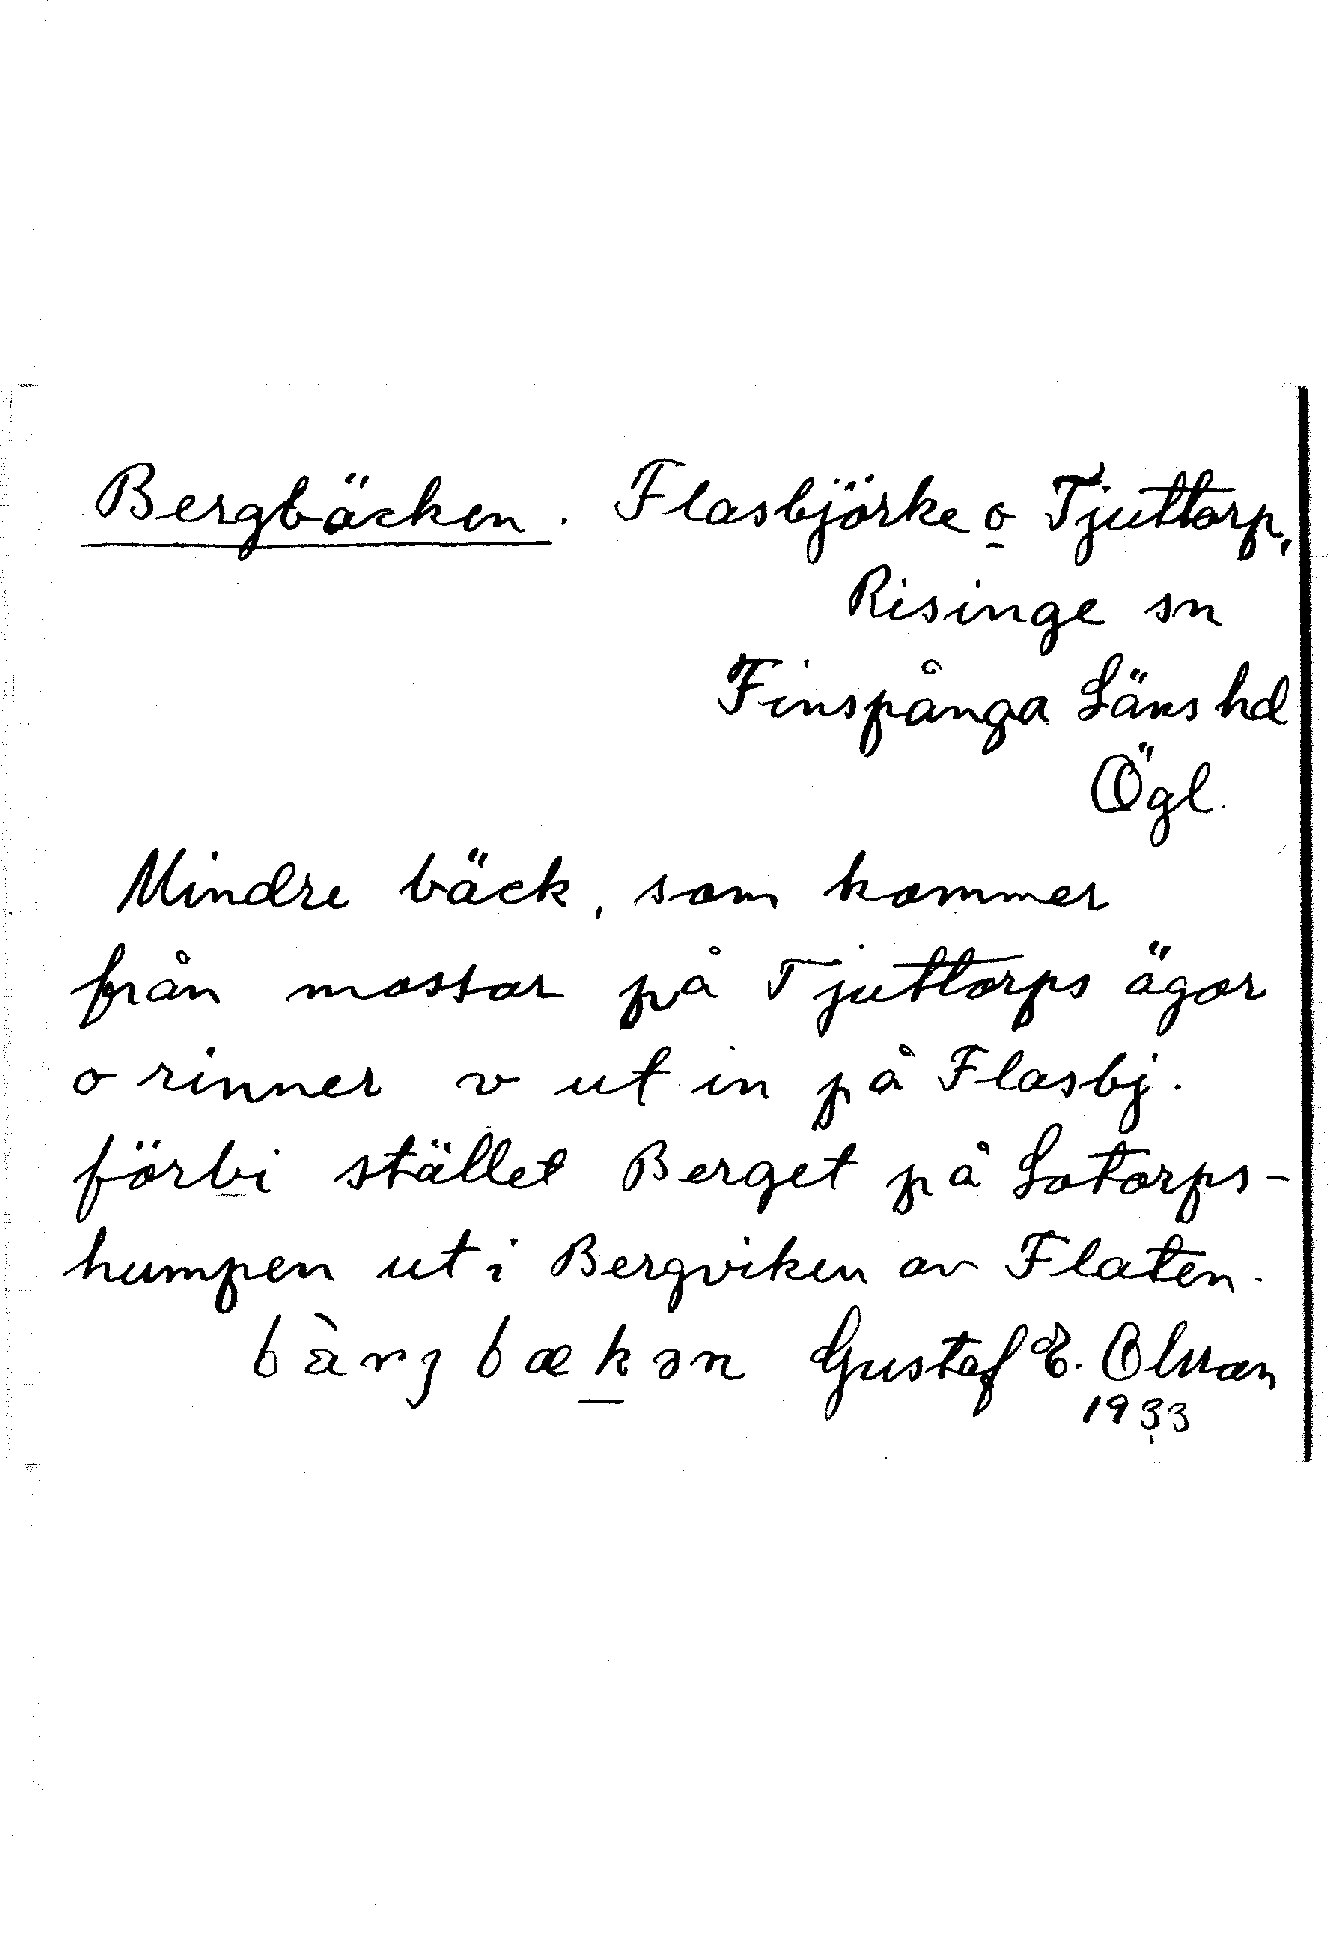 Bergbäcken. Flasbjörke o Tjuttorp,
Risinge sn
Finspånga Läns hd
Ögl.
Mindre bäck, som kommer
från mossar på Tjuttorps ägor
o rinner v ut in på Flasbj.
förbi stället Berget på Lotorps-
humpen ut i Bergviken av Flaten.
bàrȷbækən Gustaf E. Olsson
1933